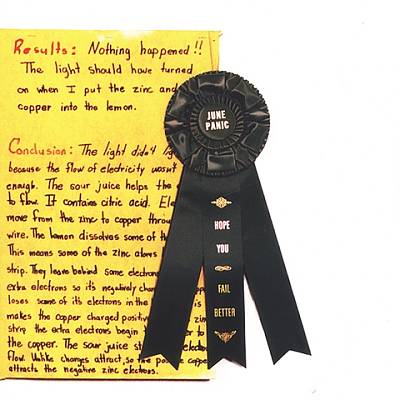 Results: Nothing happened!!
The light should have turned
on when I put the zinc and
copper into the lemon.
Conclusion: The light didn't
because the flow of electricity wasn't
enough. The sour juice helps the
to flow. It contains citric acid.
move from the zinc to copper
wire. The lemon dissolves some of the
This means some of the zinc
strip. They leave behind some
extra electrons so its negatively
loses some of its electrons in the
makes the copper charged
strip the extra electrons begin to
the copper. The sour juice
flow. Unlike charges attract, so the copper
attracts the negative zinc electrons.
JUNE
PANIC
HOPE
YOU
FAIL
BETTER